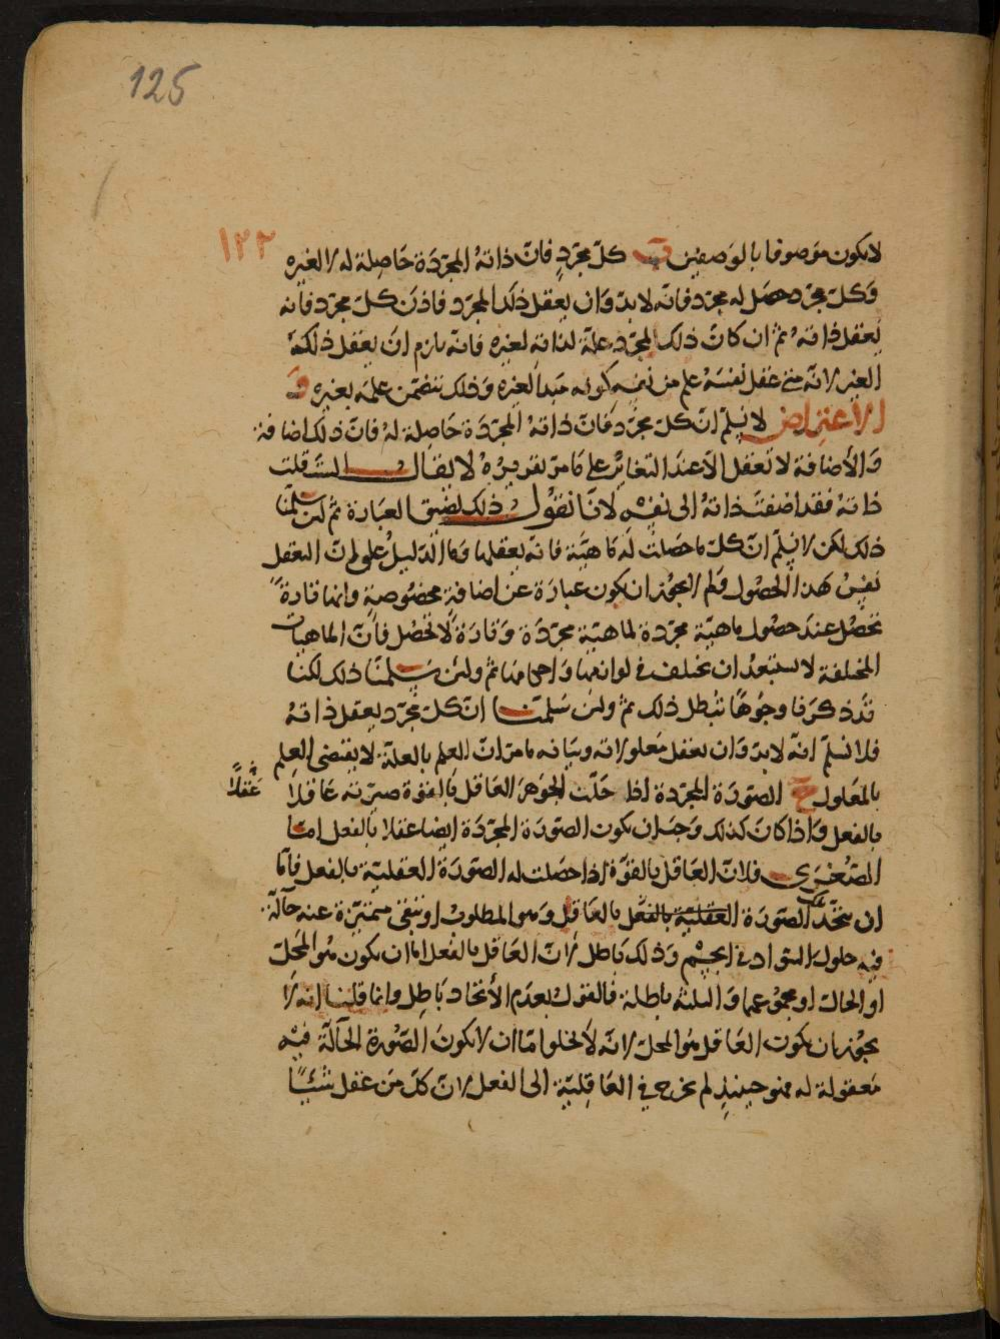 125
١٢٢
لا يكون موصوفا بالوصفين ب كل مجرد فان ذاته المجردة حاصلة له لا لغيره
وكل مجرد حصل له مجرد فانه لا بد وان يعقل ذلك المجرد فاذن كل مجرد فانه
يعقل ذاته ثم ان كان ذلك المجرد علة لذاته لغيره فانه يلزم ان يعقل ذلك
الغير لانه متى عقل نفسه علم من نفسه كونه مبدأ لغيره وذلك يتضمن علمه بغيره و
الاعتراض لا نسلم ان كل مجرد فان ذاته المجردة حاصلة له فان ذلك اضافة
والاضافة لا تعقل الا عند التغاير على ما مر تقريره لا يقال الست قلت
ذاته فقد اضفت ذاته الى نفسه لانا نقول ذلك لضيق العبارة ثم لئن سلمنا
ذلك لكن لا نسلم ان كل ما حصلت له ماهية فانه يعقلها وما الدليل على ان التعقل
نفس هذا الحصول ولم لا يجوز ان يكون عبارة عن اضافة مخصوصة وانها تارة
تحصل عند حصول ماهية مجردة لماهية مجردة وتارة لا تحصل فان الماهيات
المختلفة لا يستبعد ان تختلف في لوازمها واحكامها ثم ولئن سلمنا ذلك لكنا
قد ذكرنا وجوها تبطل ذلك ثم ولئن سلمنا ان كل مجرد يعقل ذاته
فلا نسلم انه لا بد وان يعقل معلولاته وبيانه ما مر ان العلم بالعلة لا يقتضى العلم
بالمعلول ج الصورة المجردة اذا حلت الجوهر العاقل بالقوة صيرته عاقلا
عقلا
بالفعل واذا كان كذلك وجب ان تكون الصورة المجردة ايضا عقلا بالفعل اما
الصغرى فلان العاقل بالقوة اذا حصلت له الصورة العقلية بالفعل فاما
ان تتحد الصورة العقلية بالفعل بالعاقل وهو المطلوب او تبقى متميزة عنه حالة
فيه حلول السواد في الجسم وذلك باطل لان العاقل بالفعل اما ان يكون هو المحل
او الحال او مجموعهما والثلثة باطلة فالقول بعدم الاتحاد باطل وانما قلنا انه لا
يجوز ان يكون العاقل هو المحل لانه لا يخلوا اما ان لا يكون الصورة الحالة فيه
معقولة له فهو حينئذ لم يخرج في العاقلية الى الفعل لان كل من عقل شيئا